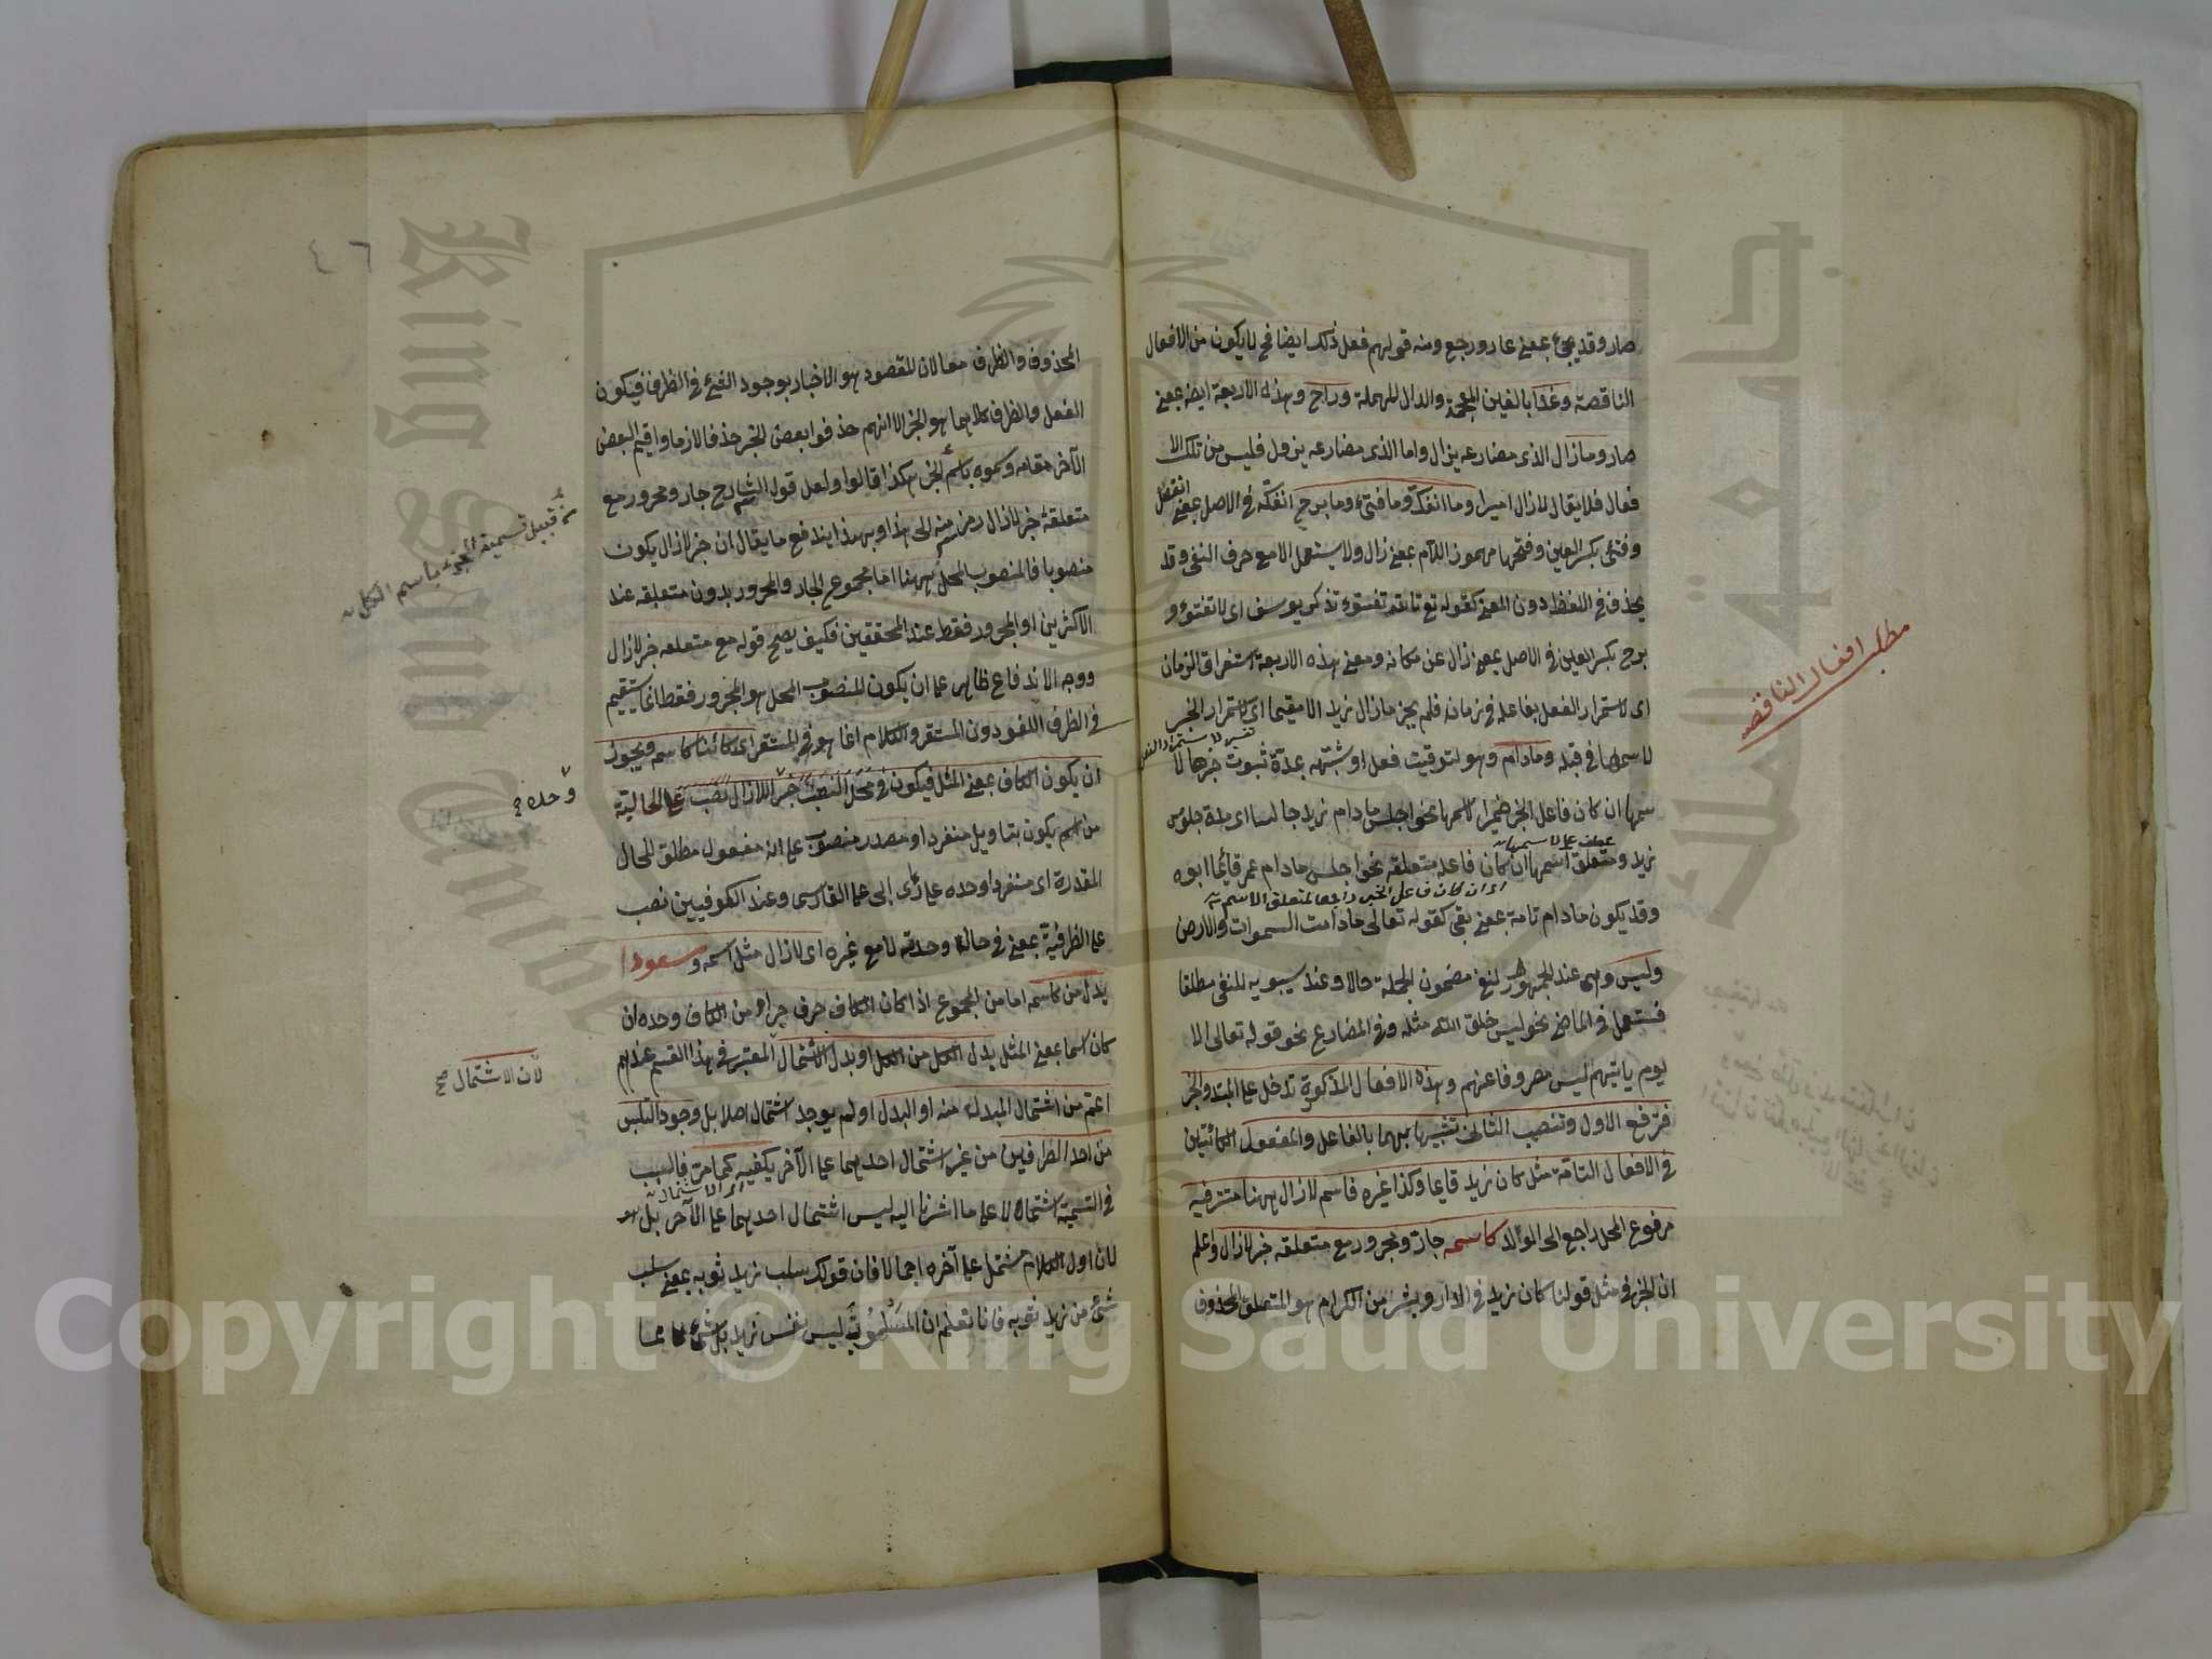 صار وقد يجئ بمعنى عاد ورجع ومنه قولهم فعل ذلك ايضا فح لا يكون من الافعال
الناقصة وغدا بالغين المعجمة والدال المهملة وراح وهذه الاربعة ايضا بمعنى
صار وما زال الذى مضارعه يزال واما الذى مضارعه يزول فليس من تلك الا
فعال فلا يقال لا زال اميرا وما انفك وما فتئ وما برح انفك فى الاصل بمعنى انفصل
وفتئ بكسر العين وفتحها مهموز اللام بمعنى زال ولا يستعمل الا مع حرف النفى وقد
يحذف فى اللفظ دون المعنى كقوله تع تالله تفتؤ تذكر يوسف اى لا تفتؤ و
برح بكسر العين فى الاصل بمعنى زال عن مكانه ومعنى هذه الاربعة استغراق الزمان
اى لاستمرار الفعل بفاعله فى زمانه فلم يجز ما زال زيد الا مقيما اى لاستمرار الخبر
لاسمها فى قبله وما دام وهو لتوقيت فعل او شبهه بمدة ثبوت خبرها لا
سمها ان كان فاعل الخبر ضميرا لاسمها نحو اجلس ما دام زيد جالسا اى مدة جلوس
عطف على لاسمها
زيد ومتعلق اسمها ان كان فاعله متعلقه نحو اجلس ما دام عمر قائما ابوه
اى ان كان فاعل الخبر راجعا لمتعلق الاسم
وقد يكون ما دام تامة بمعنى بقى كقوله تعالى ما دامت السموات والارض
وليس وهى عند الجمهور لنفى مضمون الجملة حالا وعند سيبويه للنفى مطلقا
فتستعمل فى الماضى نحو ليس خلق الله مثله وفى المضارع نحو قوله تعالى الا
يوم ياتيهم ليس مصروفا عنهم وهذه الافعال المذكورة تدخل على المبتدا والخبر
فترفع الاول وتنصب الثانى تشبيها بهما بالفاعل والمفعول الكائنين
فى الافعال التامة مثل كان زيد قايما وكذا غيره فاسم لا زال ههنا مستتر فيه
مرفوع المحل راجع الى الوالد كاسمه جار ومجرور مع متعلقه خبر لا زال واعلم
ان الخبر فى مثل قولنا كان زيد فى الدار وبشر من الكرام هو المتعلق المحذوف
مطلب افعال الناقصه
٤٦
المحذوف والظرف معا لان المقصود هو الاخبار بوجود الشئ فى الظرف فيكون
الفعل والظرف كلاهما هو الخبر الا انهم حذفوا بعض الخبر حذفا لازما واقيم البعض
الآخر مقامه وسموه باسم الخبر هكذا قالوا ولعل قول الشارح جار ومجرور مع
متعلقه خبر لا زال رمز منه الى هذا وبهذا يندفع ما يقال ان خبر لا زال يكون
منصوبا فالمنصوب المحل ههنا اما مجموع الجار والمجرور بدون متعلقه عند
الاكثرين او المجرور فقط عند المحققين فكيف يصح قوله مع متعلقه خبر لا زال
ووجه الاندفاع ظاهر على ان يكون المنصوب المحل هو المجرور فقط انما يستقيم
فى الظرف اللغو دون المستقر والكلام انما هو فى المستقر اى كائنا كاسمه ويجوز
ان يكون الكاف بمعنى المثل فيكون فى محل النصب خبر اللازال نصب على الحالية
من اسم يكون بتاويل منفردا او مصدر منصوب على انه مفعول مطلق للحال
المقدرة اى منفردا وحده على رأى ابى على الفارسى وعند الكوفيين نصب
على الظرفية بمعنى فى حالة وحدته لا مع غيره اى لا زال مثل اسمه ومسعودا
بدل من كاسمه اما من المجموع اذا كان الكاف حرف جر او من الكاف وحده ان
كان اسما بمعنى المثل بدل الكل من الكل او بدل الاشتمال المعتبر فى هذا القسم عندهم
اعم من اشتمال المبدل منه او البدل او لم يوجد اشتمال اصلا بل وجود التلبس
من احد الطرفين من غير اشتمال احدهما على الآخر يكفيه كما مر فالسبب
اى الاشتمال
فى التسمية اشتمالا على ما اشرنا اليه ليس اشتمال احدهما على الآخر بل
لان اول الكلام مشتمل على آخره اجمالا فان قولك سلب زيد ثوبه بمعنى سلب
شئ من زيد ثوبه فانا نعلم ان المسلوب ليس نفس زيد بل شئ
من قبيل تسمية الجزء باسم الكل
وحده
لان الاشتمال صح
Copyright © King Saud University